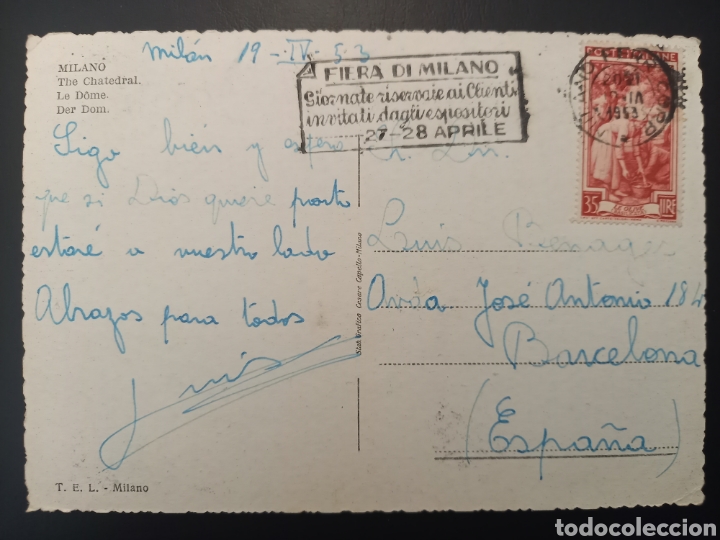 Milán 19-IV-53
MILANO
The Chatedral.
Le Dôme.
Der Dom.
FIERA DI MILANO
Giornate riservate ai Clienti
invitati dagli espositori
27-28 APRILE
1953
35 LIRE
Sigo bién y espero
que si Dios quiere pronto
estaré a vuestro lado
Abrazos para todos
Luis
Sr. Dn.
Luis
Avda José Antonio 184
Barcelona
(España)
Stab. Grafico Cesare Capello-Milano
T. E. L. - Milano
todocoleccion